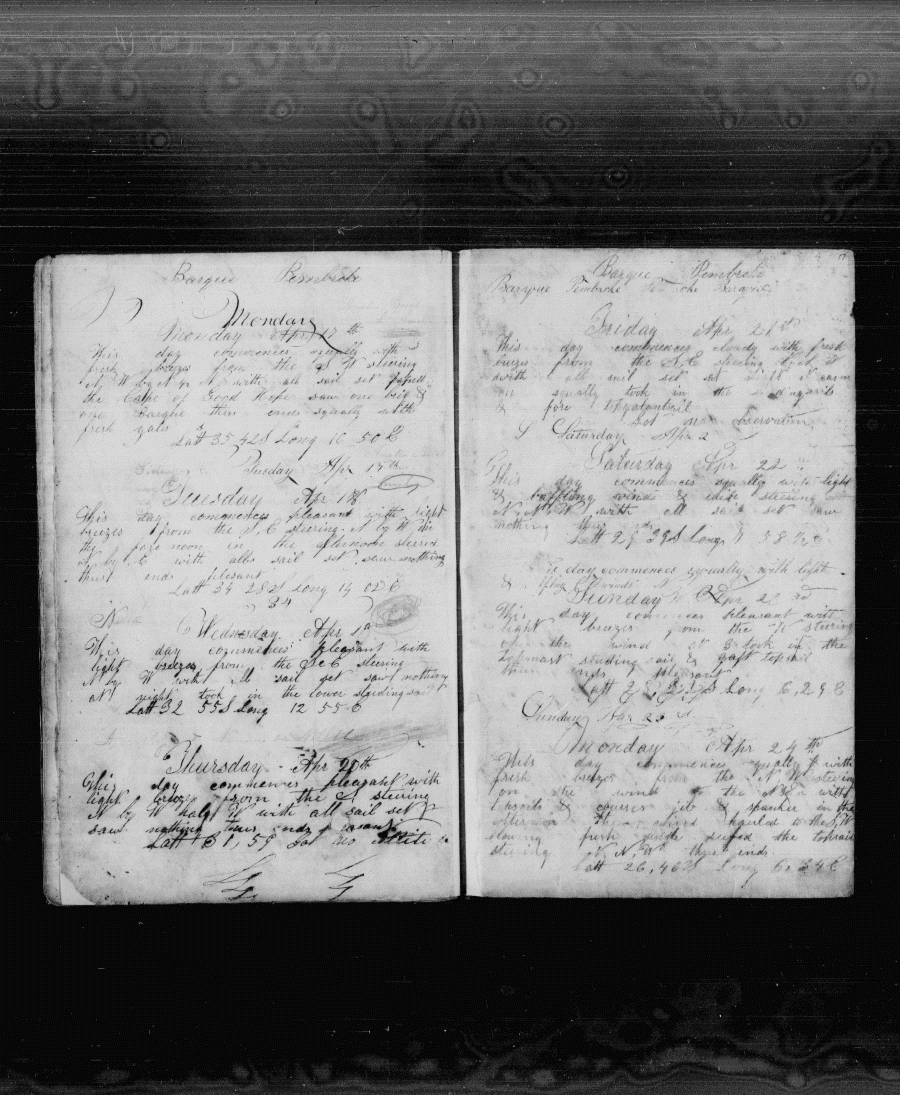 Barque Pembroke
Monday
Monday Apr 17th
This day commences squally with
fresh breezes from the S W steering
N W by N with all sail set passed
the Cape of Good Hope saw one brig &
one Barque thus ends squaly with
fresh gales
Latt 35 42 S Long 16 50 E
Tuesday Apr 17th
Tuesday Apr 18
This day commences pleasant with light
breezes from the S, E steering N by W in
the fore noon in the afternoon steered
N by E with all sail set saw nothing
thus ends plesant
Latt 34 28 S Long 14 02 E
34
N
Wednesday Apr 19
This day commences pleasant with
light breezes from the S, E steering
N by W with all sail set saw nothing
at night took in the lower studingsail
Latt 32 55 S Long 12 55 E
Thursday Apr 20th
This day commences pleasant with
light breezes from the steering
N by W half W with all sail set
saw nothing thus ends
Latt 31, 59 got no
Barque Pembroke
Barque Pembroke Barque
Friday Apr 21st
This day commences cloudy with fresh
breezes from the S, E steering
with all sail set at night it came
on squally took in the studingsails
& fore topgalantsail
Got no observation
S Saturday Apr 2
Saturday Apr 22
This day commences squally with light
& baffling winds & steering
N W with all sail set saw
nothing thus ends
Latt 29 39 S Long 7 58 E
day commences squally with light
&
Sunday Apr 23rd
This day comences pleasant with
light breezes from the N steering
on the wind at took in the
studing sail & gaft topsail
thus ends plesant
Latt S Long 6, 29 E
Sunday Apr 23rd
Monday Apr 24th
This day commences squally with
fresh breezes from the N W steering
on the wind to the N E with
topsails & courses jib & spanker in the
afternoon the wind hauled to the S, W
blowing fresh reefed the topsails
steering N, N, W thus ends
Latt 26, 46 S Long 6, 34 E